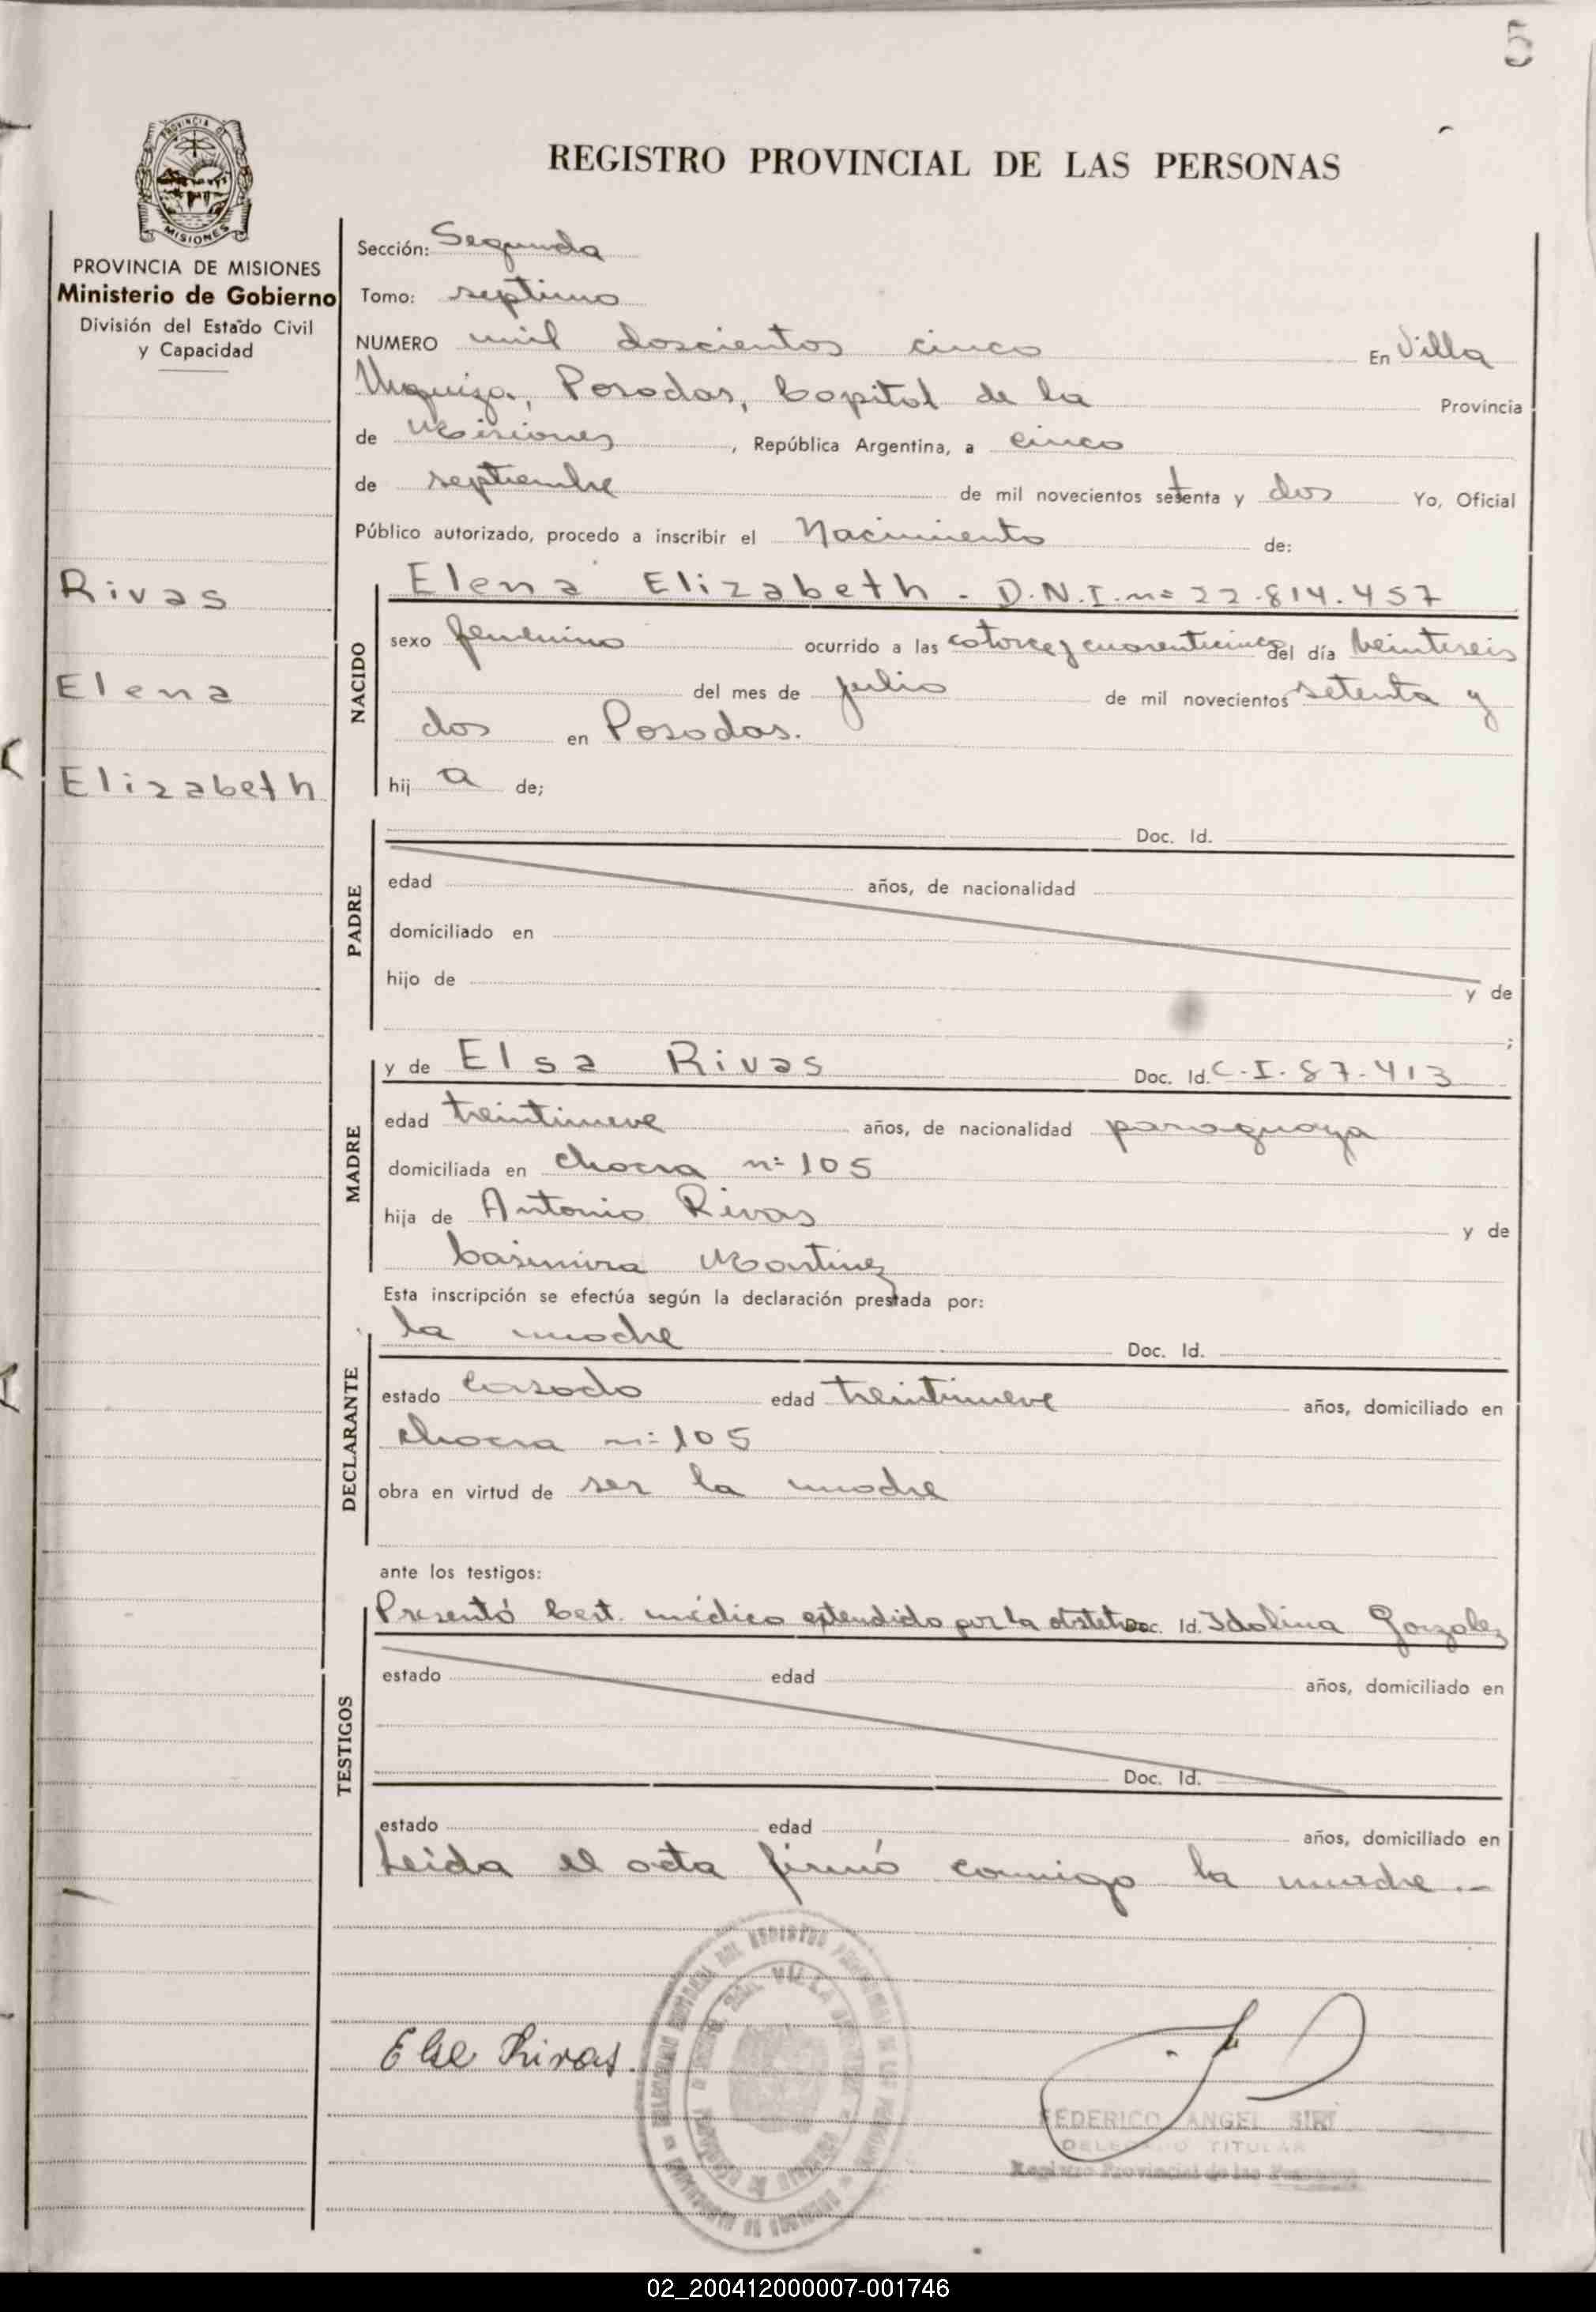 5
PROVINCIA DE MISIONES
REGISTRO PROVINCIAL DE LAS PERSONAS
PROVINCIA DE MISIONES
Ministerio de Gobierno
División del Estado Civil
y Capacidad
Rivas
Elena
Elizabeth
Sección: Segunda
Tomo: septimo
NUMERO mil doscientos cinco En Villa
Urquiza, Posadas, Capital de la Provincia
de Misiones, República Argentina, a cinco
de septiembre de mil novecientos setenta y dos Yo, Oficial
Público autorizado, procedo a inscribir el Nacimiento de:
NACIDO
Elena Elizabeth - D.N.I. nº 22.814.457
sexo femenino ocurrido a las catorce y cuarenticinco del día veintiseis
del mes de julio de mil novecientos setenta y
dos en Posadas.
hij a de;
PADRE
Doc. Id.
edad años, de nacionalidad
domiciliado en
hijo de y de
;
MADRE
y de Elsa Rivas Doc. Id. C.I. 87.413
edad treintinueve años, de nacionalidad paraguaya
domiciliada en chacra nº 105
hija de Antonio Rivas y de
Casimira Martinez
Esta inscripción se efectúa según la declaración prestada por:
DECLARANTE
la madre Doc. Id.
estado casado edad treintinueve años, domiciliado en
chacra nº 105
obra en virtud de ser la madre
ante los testigos:
TESTIGOS
Presentó Cert. médico extendido por la obstetra Doc. Id. Idolina Gonzalez
estado edad años, domiciliado en
Doc. Id.
estado edad años, domiciliado en
Leida el acta firmó conmigo la madre.-
Else Rivas.
FEDERICO ANGEL
DELEGADO TITULAR
Registro Provincial de las Personas
02_200412000007-001746